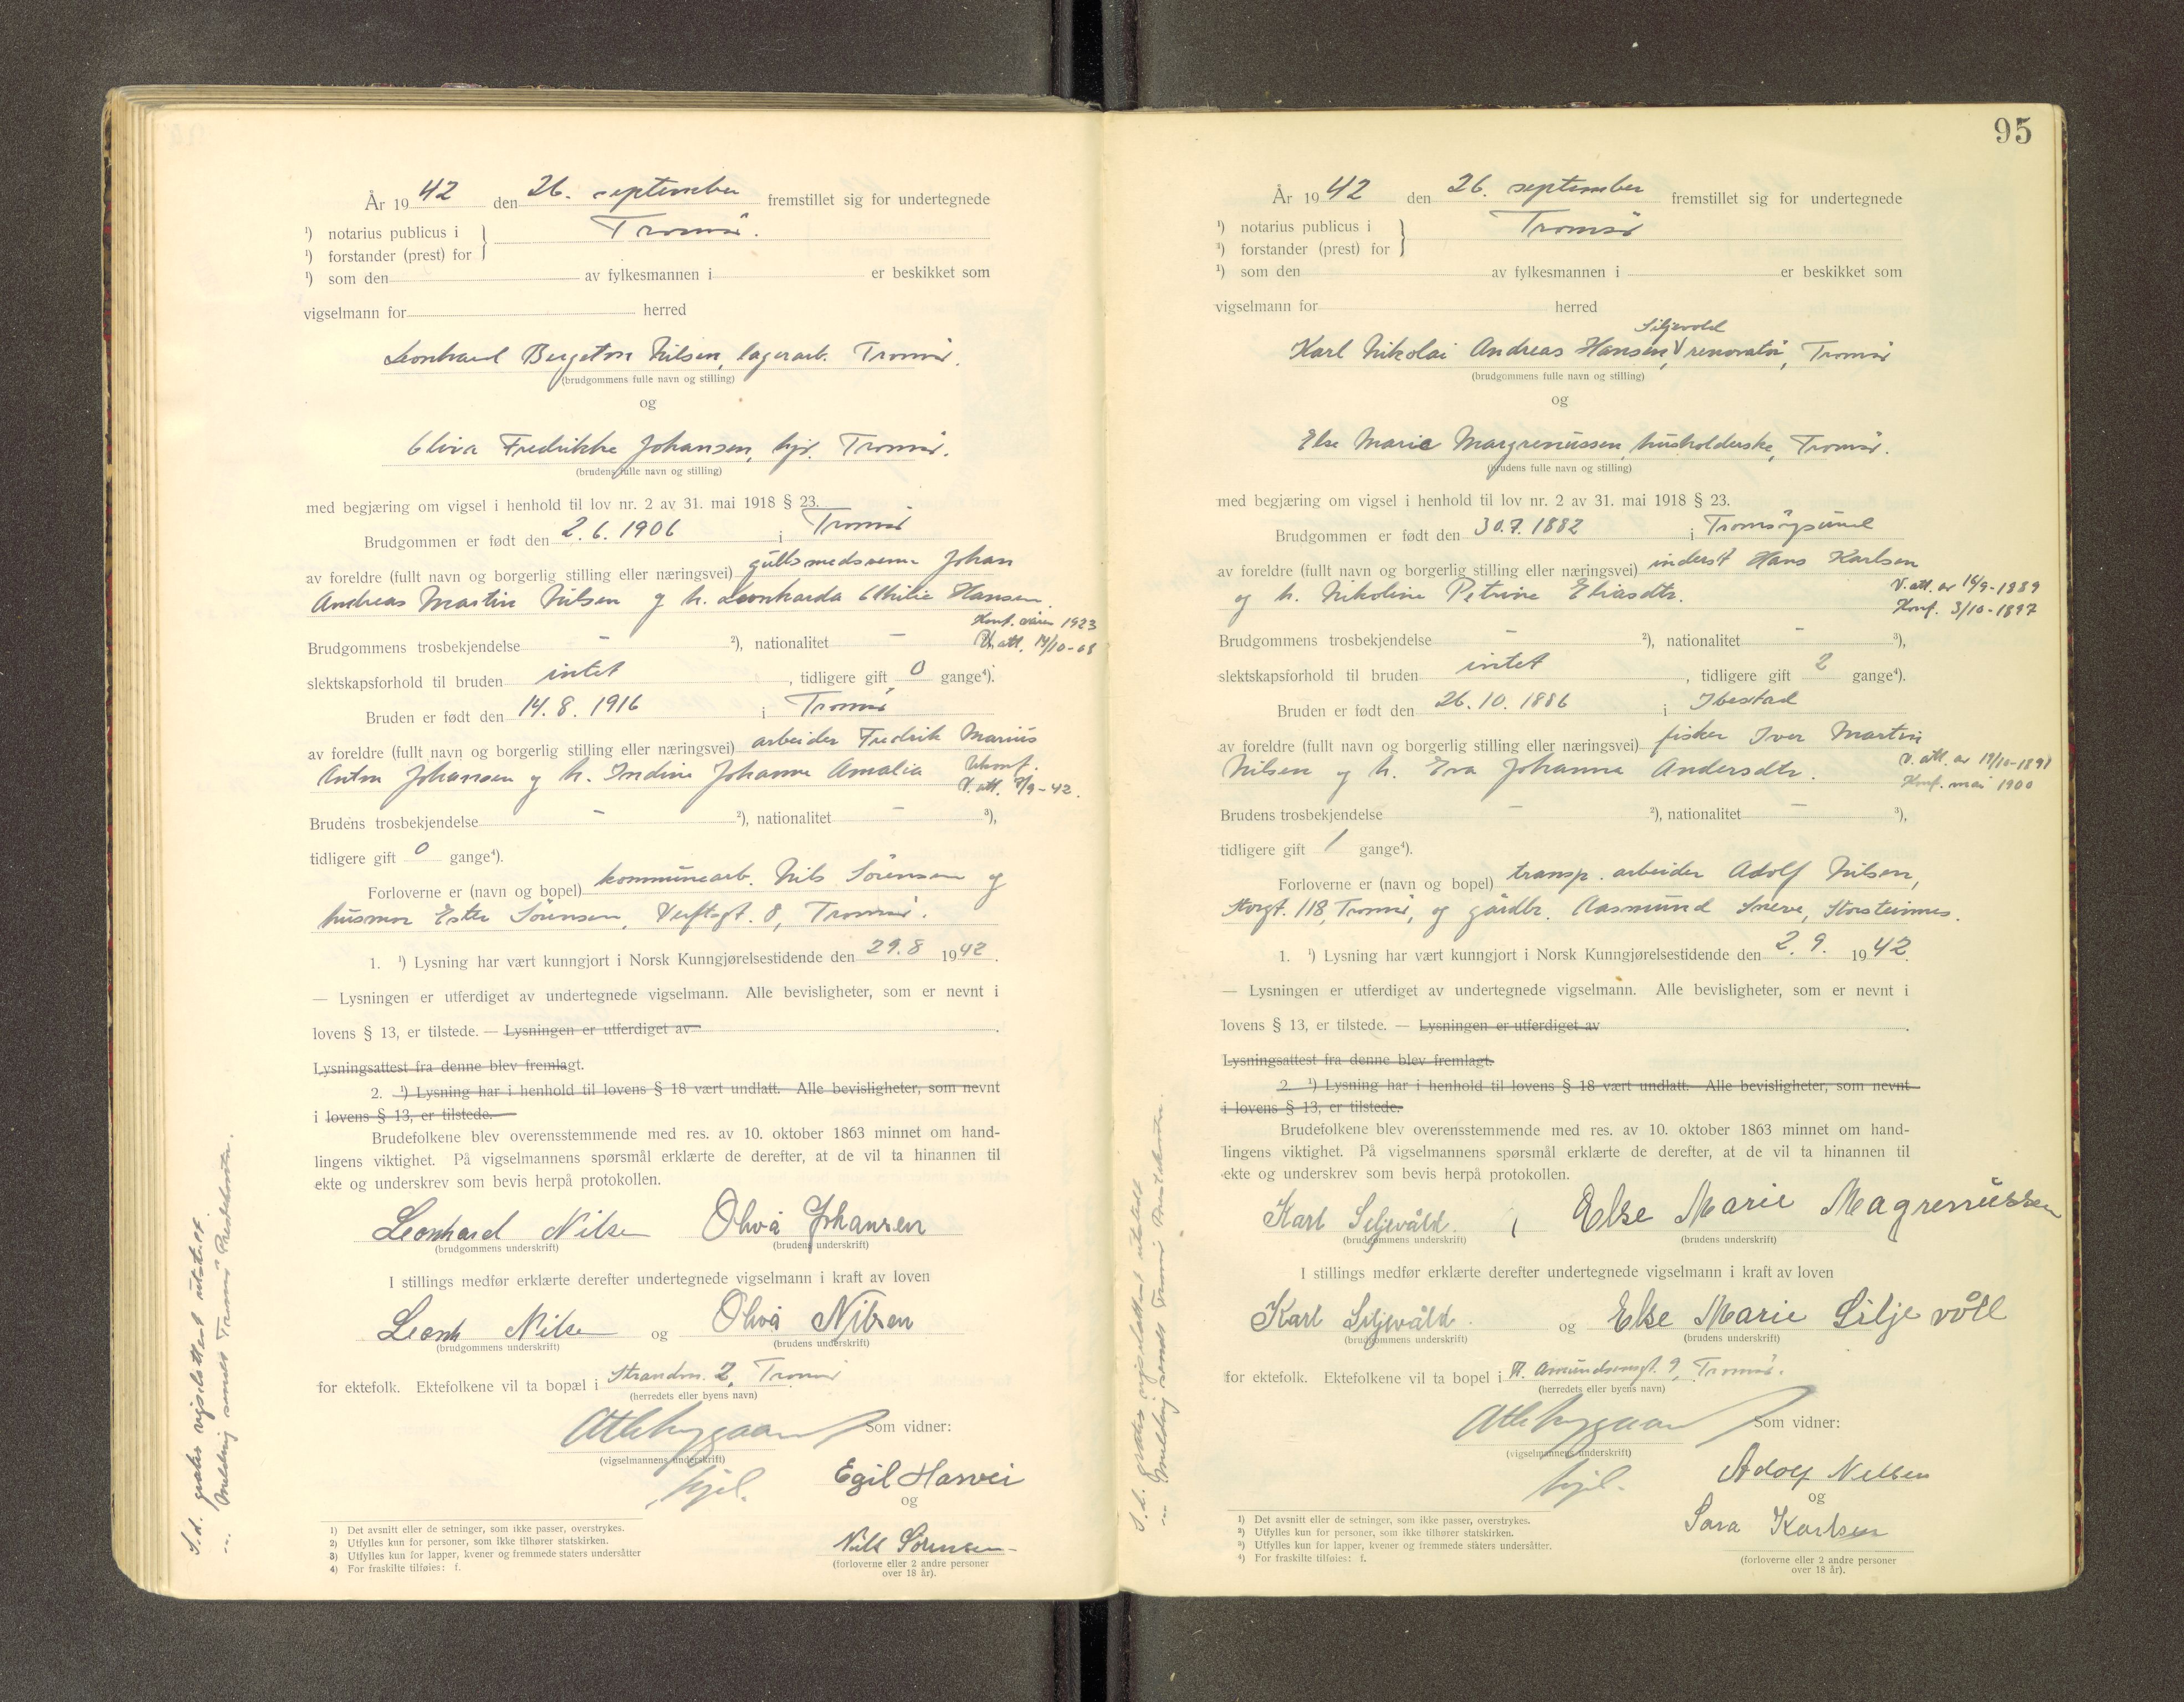 År 1942 den 26. september fremstillet sig for undertegnede
¹) notarius publicus i } Tromsö.
¹) forstander (prest) for
¹) som den av fylkesmannen i er beskikket som
vigselmann for herred
Leonhard Bergeton Nilsen, lagerarb. Tromsö.
(brudgommens fulle navn og stilling)
og
Oliva Fredrikke Johansen, hjv. Tromsö.
(brudens fulle navn og stilling)
med begjæring om vigsel i henhold til lov nr. 2 av 31. mai 1918 § 23.
Brudgommen er født den 2.6.1906 i Tromsö
av foreldre (fullt navn og borgerlig stilling eller næringsvei) gullsmedsvenn Johan
Andreas Martin Nilsen og h. Leonharda Othilie Hansen.
Konf. våren 1923
V. att. 14/10-08
Brudgommens trosbekjendelse – ²), nationalitet –
slektskapsforhold til bruden intet, tidligere gift 0 gange⁴).
Bruden er født den 14.8.1916 i Tromsö
av foreldre (fullt navn og borgerlig stilling eller næringsvei) arbeider Fredrik Marius
Anton Johansen og h. Indine Johanne Amalia
Ukonf.
V. att. 7/9-42.
Brudens trosbekjendelse – ²), nationalitet – ³),
tidligere gift 0 gange⁴).
Forloverne er (navn og bopel) kommunearb. Nils Sörensen og
husmor Ester Sörensen, Verftsgt. 8, Tromsö.
1. ¹) Lysning har vært kunngjort i Norsk Kunngjørelsestidende den 29.8 1942.
— Lysningen er utferdiget av undertegnede vigselmann. Alle bevisligheter, som er nevnt i
lovens § 13, er tilstede. — Lysningen er utferdiget av
Lysningsattest fra denne blev fremlagt.
2. ¹) Lysning har i henhold til lovens § 18 vært undlatt. Alle bevisligheter, som nevnt
i lovens § 13, er tilstede.
Brudefolkene blev overensstemmende med res. av 10. oktober 1863 minnet om hand-
lingens viktighet. På vigselmannens spørsmål erklærte de derefter, at de vil ta hinannen til
ekte og underskrev som bevis herpå protokollen.
Leonhard Nilsen Oliva Johansen
(brudgommens underskrift) (brudens underskrift)
I stillings medfør erklærte derefter undertegnede vigselmann i kraft av loven
Leonh Nilsen og Oliva Nilsen
(brudgommens underskrift) (brudens underskrift)
for ektefolk. Ektefolkene vil ta bopæl i Strandvn. 2, Tromsö
(herredets eller byens navn)
Som vidner:
(vigselmannens underskrift)
Egil Hasvei
og
Nils Sörensen
(forloverne eller 2 andre personer
over 18 år).
1) Det avsnitt eller de setninger, som ikke passer, overstrykes.
2) Utfylles kun for personer, som ikke tilhører statskirken.
3) Utfylles kun for lapper, kvener og fremmede staters undersåtter
4) For fraskilte tilføies: f.
S.d. gratis vigselattest utstedt.
— " — melding sendt Tromsö Prestekontor.
95
År 1942 den 26. september fremstillet sig for undertegnede
¹) notarius publicus i } Tromsö
¹) forstander (prest) for
¹) som den av fylkesmannen i er beskikket som
vigselmann for herred
Siljevold
Karl Nikolai Andreas Hansen, renovatör, Tromsö
(brudgommens fulle navn og stilling)
og
Else Marie Margrenussen, husholderske, Tromsö.
(brudens fulle navn og stilling)
med begjæring om vigsel i henhold til lov nr. 2 av 31. mai 1918 § 23.
Brudgommen er født den 30.7.1882 i Tromsöysund
av foreldre (fullt navn og borgerlig stilling eller næringsvei) inderst Hans Karlsen
og h. Nikoline Petrine Eliasdtr.
V. att. av 16/9-1889
Konf. 3/10-1897
Brudgommens trosbekjendelse – ²), nationalitet – ³),
slektskapsforhold til bruden intet, tidligere gift 2 gange⁴).
Bruden er født den 26.10.1886 i Ibestad
av foreldre (fullt navn og borgerlig stilling eller næringsvei) fisker Iver Martin
Nilsen og h. Eva Johanna Andersdtr.
V. att. av 19/10-1891
Konf. mai 1900
Brudens trosbekjendelse – ²), nationalitet – ³),
tidligere gift 1 gange⁴).
Forloverne er (navn og bopel) transp. arbeider Adolf Nilsen,
Storgt. 118, Tromsö, og gårdbr. Aasmund Sneve, Storsteinnes.
1. ¹) Lysning har vært kunngjort i Norsk Kunngjørelsestidende den 2.9. 1942.
— Lysningen er utferdiget av undertegnede vigselmann. Alle bevisligheter, som er nevnt i
lovens § 13, er tilstede. — Lysningen er utferdiget av
Lysningsattest fra denne blev fremlagt.
2 ¹) Lysning har i henhold til lovens § 18 vært undlatt. Alle bevisligheter, som nevnt
i lovens § 13, er tilstede.
Brudefolkene blev overensstemmende med res. av 10. oktober 1863 minnet om hand-
lingens viktighet. På vigselmannens spørsmål erklærte de derefter, at de vil ta hinannen til
ekte og underskrev som bevis herpå protokollen.
Karl Siljevåld. Else Marie Magrenussen
(brudgommens underskrift) (brudens underskrift)
I stillings medfør erklærte derefter undertegnede vigselmann i kraft av loven
Karl Siljevåld. og Else Marie Siljevåll
(brudgommens underskrift) (brudens underskrift)
for ektefolk. Ektefolkene vil ta bopel i R. Amundsensgt. 9, Tromsö.
(herredets eller byens navn)
Som vidner:
(vigselmannens underskrift)
Adolf Nilsen
og
Sara Karlsen
(forloverne eller 2 andre personer
over 18 år).
1) Det avsnitt eller de setninger, som ikke passer, overstrykes.
2) Utfylles kun for personer, som ikke tilhører statskirken.
3) Utfylles kun for lapper, kvener og fremmede staters undersåtter.
4) For fraskilte tilføies: f.
S.d. gratis vigselattest utstedt
— " — melding sendt Tromsö Prestekontor.